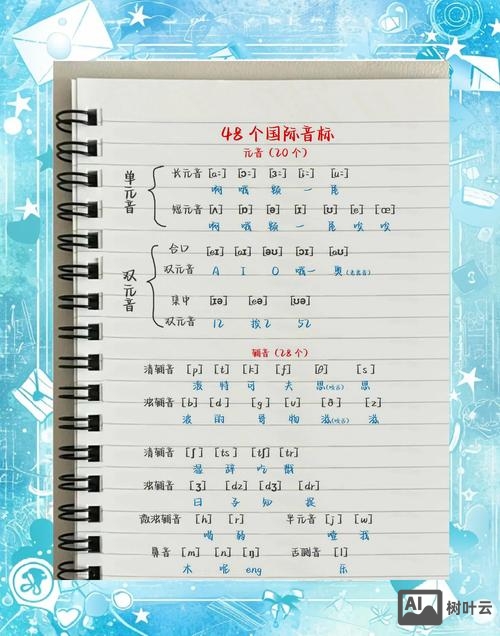 48个国际音标
元音（20个）
单元音
长元音 [ɑː] [ɔː] [ɜː] [iː] [uː]
啊 哦 额 一
短元音 [ʌ] [ɒ] [ə] [ɪ] [ʊ] [e] [æ]
啊 哦 额 一 唉 唉
双元音
合口 [eɪ] [aɪ] [əʊ] [ɔɪ] [aʊ]
双元音 A I O 哦一 奥
集中 [ɪə] [eə] [ʊə]
双元音 12 挨2 52
辅音（28个）
清辅音 [p] [t] [k] [f] [θ] [s]
泼 特 可 夫 思(咬舌) 思
浊辅音 [b] [d] [g] [v] [ð] [z]
波 的 哥 物 滋(咬舌) 滋
清辅音 [ʃ] [ts] [tʃ] [tr]
湿 辞 吃 戳
浊辅音 [ʒ] [dz] [dʒ] [dr]
日 子 知 捉
微浊辅音 [h] [r] 半元音 [j] [w]
喝 弱 我
鼻音 [m] [n] [ŋ] 舌侧音 [l]
木 呢 eng 乐
AI 树叶云